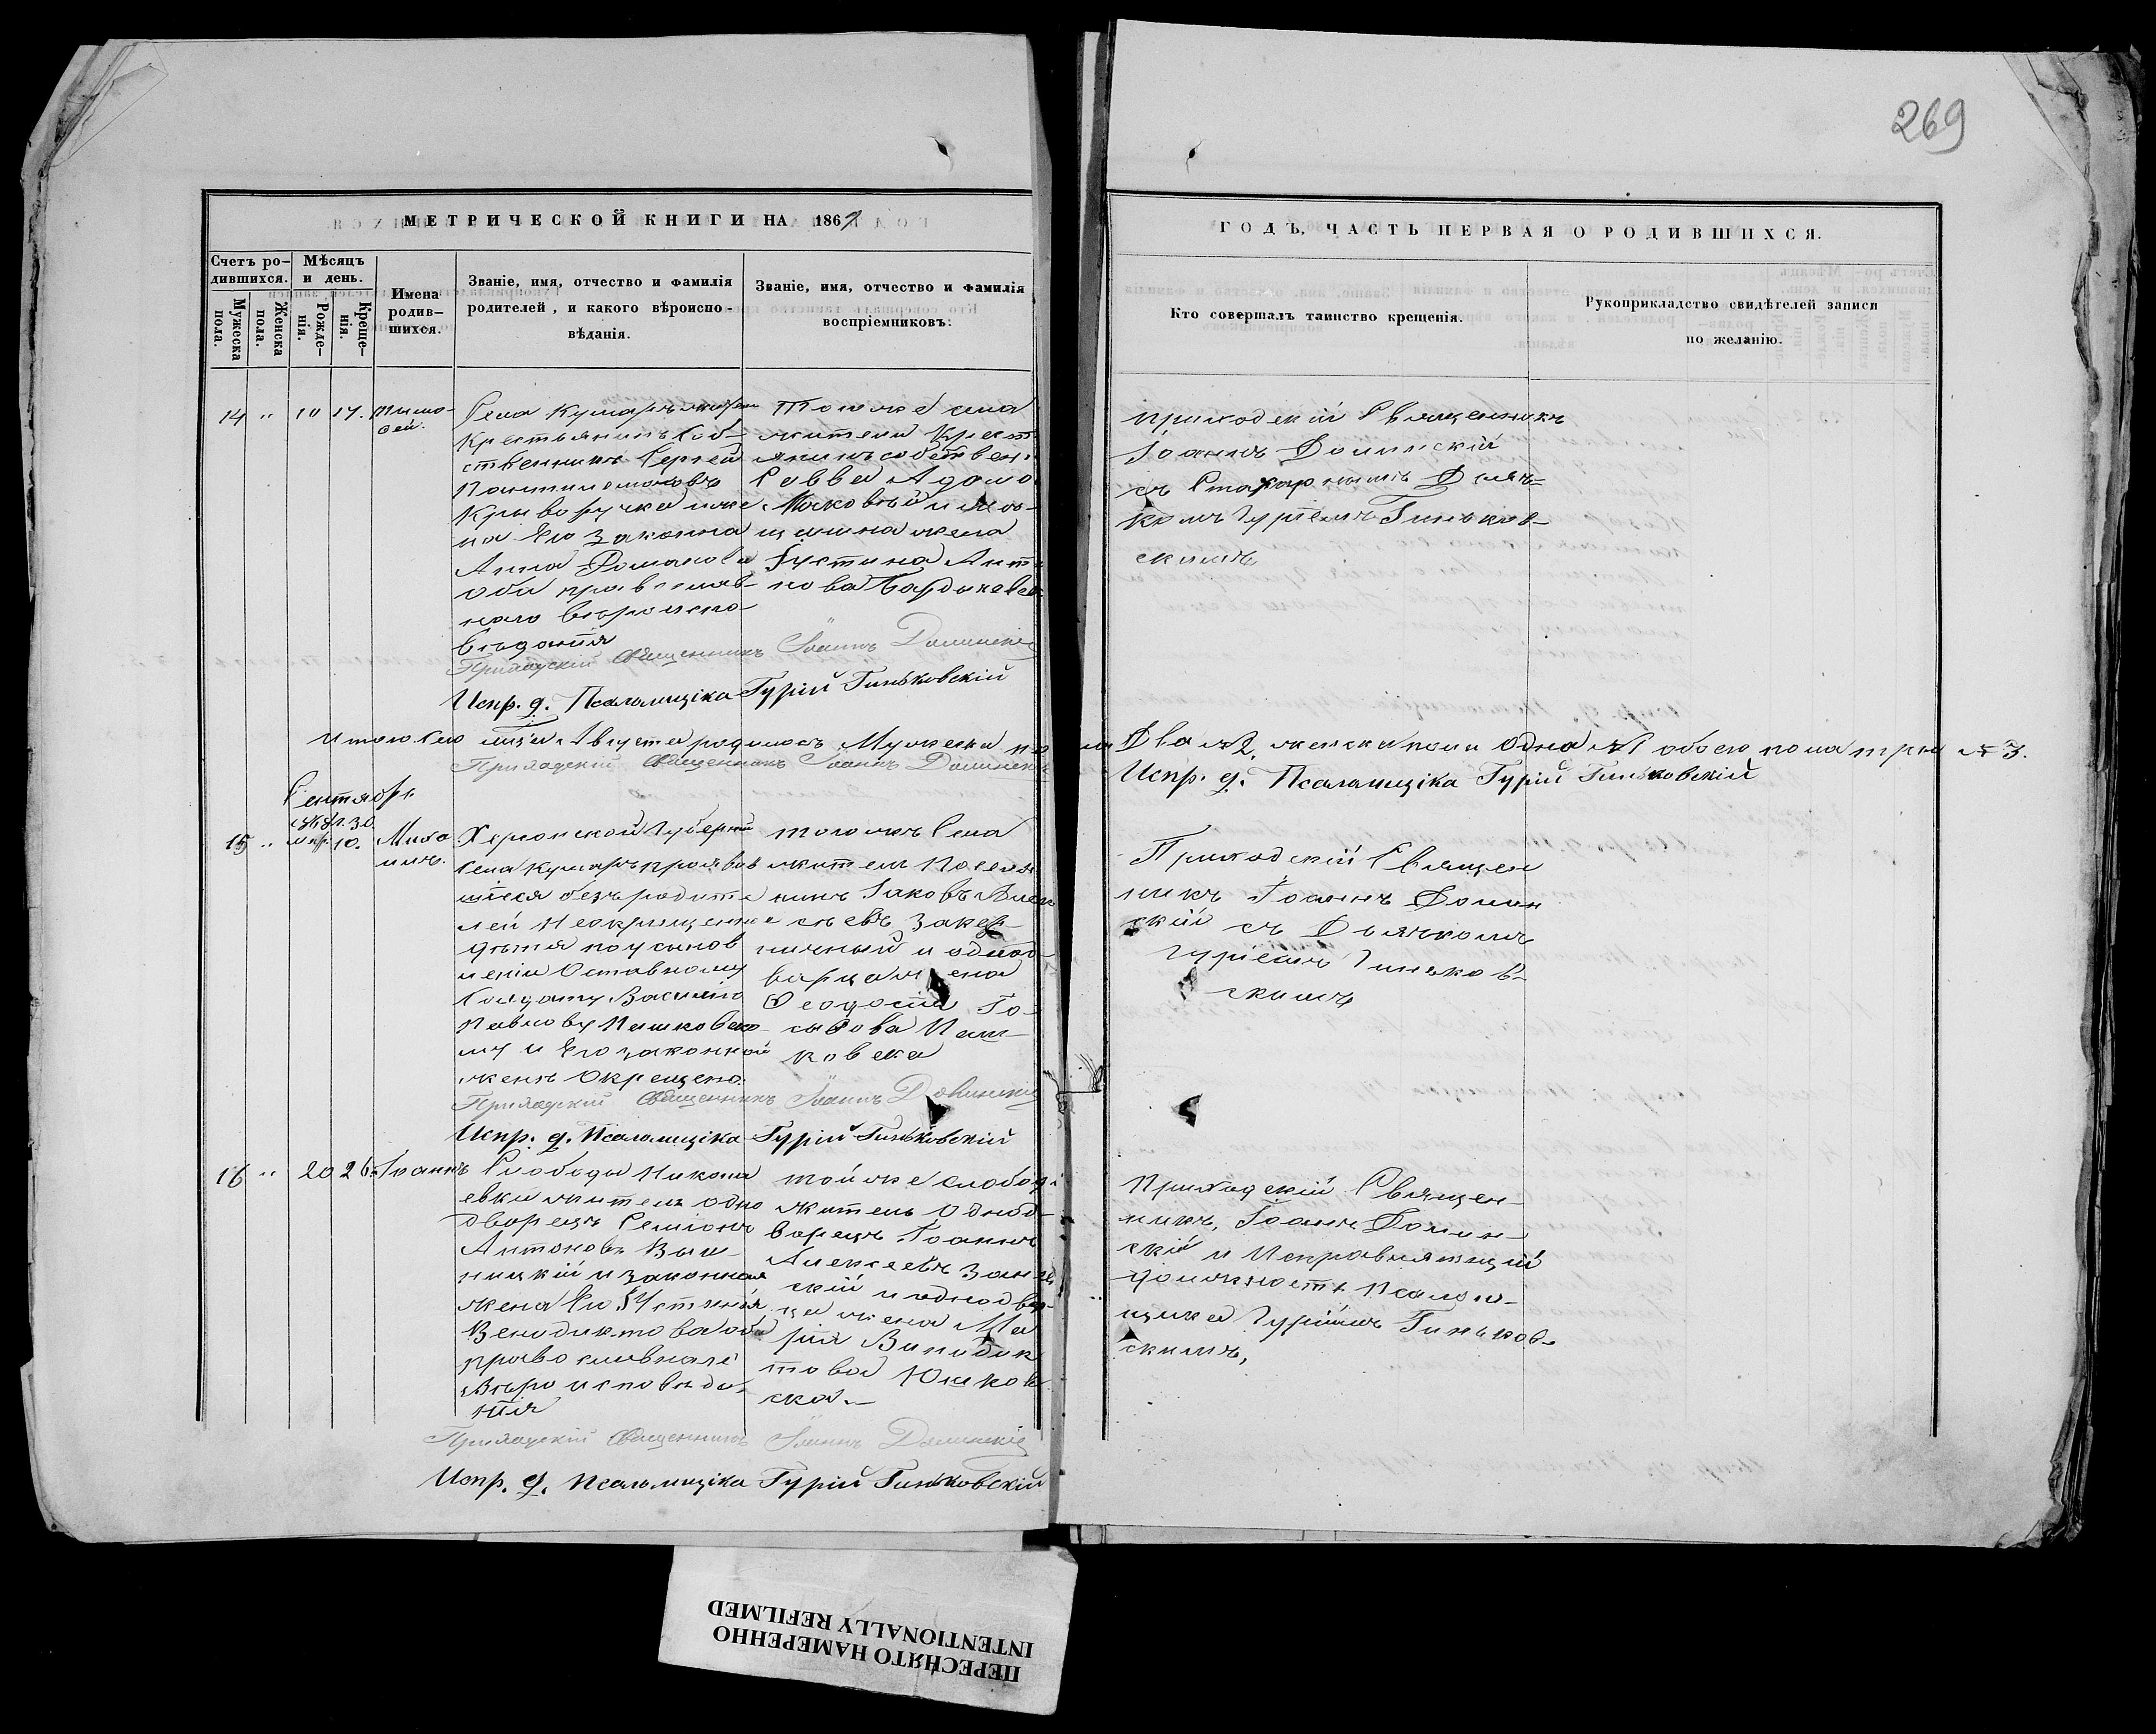 269
МЕТРИЧЕСКОЙ КНИГИ НА 1869
ГОДЪ, ЧАСТЬ ПЕРВАЯ О РОДИВШИХСЯ.
Счетъ ро-
дившихся.
Мужеска пола.
Женска пола.
Мѣсяцъ
и день.
Рожде-
нія.
Креще-
нія.
Имена
родив-
шихся.
Званіе, имя, отчество и фамилія
родителей, и какого вѣроиспо-
вѣданія.
Званіе, имя, отчество и фамилія
воспріемниковъ.
Кто совершалъ таинство крещенія.
Рукоприкладство свидѣтелей записи
по желанію.
14 " 10 17. Тимо-
фей.
Села Кумаръ
крестьянинъ соб-
ственникъ Сергей
Криворучка
на Его законна
Анна Романова
оба православ-
наго вѣроиспо-
вѣданія
Того же села
житель крест
янинъ собствен.
Савва Адамо
жена
Іустина Анто
нова
приходскій Священникъ
Іоаннъ Долинскій
съ Дьяч-
комъ Гуріемъ Гиньков-
скимъ
Приходскій Священникъ Іоаннъ Долинскій
Испр. д. Псаломщика Гурій Гиньковскій
Итого Сего мц҃а Августа родилось Мужеска пола Два №2, женска пола Одна №1 обоего пола три №3.
Приходскій Священникъ Іоаннъ Долинскій
Испр. д. Псаломщика Гурій Гиньковскій
Сентябрь
15 " 10. Миха
илъ.
Херсонской Губерніи
села Кумаръ прояв
шіеся безъ родите
лей Некрещенное
дитя по усынов
ленію Отставному
Солдату Василію
Павлову Пашковско
му и Его законной
женѣ Окрещено.
того жъ Села
житель Поселя
нинъ Іаковъ Алек
сѣевъ
и однод
ворца жена
Феодосія
Паш
ковска
Приходскій Священ
никъ Іоаннъ Долин
скій съ Дьячкомъ
Гуріемъ Гиньков-
скимъ
Приходскій Священникъ Іоаннъ Долинскій
Испр. д. Псаломщика Гурій Гиньковскій
16 " 20 26. Іоаннъ
Слободы Никола
евки житель одно
дворецъ Семіонъ
Антоновъ Выш-
ницкій и законная
жена Его Устинія
Венодиктова оба
православнаго
вѣроисповѣда-
нія
той же слободы
житель Однод-
ворецъ Іоаннъ
Алексеевъ
скій и однодвор-
ца жена Ма
рія Винодик
това Юшков
ска.
Приходскій Священ-
никъ, Іоаннъ Долин-
скій и Исправляющій
должность Псалом-
щика Гуріймъ Гиньков-
скимъ,
Приходскій Священникъ Іоаннъ Долинскій
Испр. д. Псаломщика Гурій Гиньковскій
ПЕРЕСНЯТО НАМЕРЕННО
INTENTIONALLY REFILMED